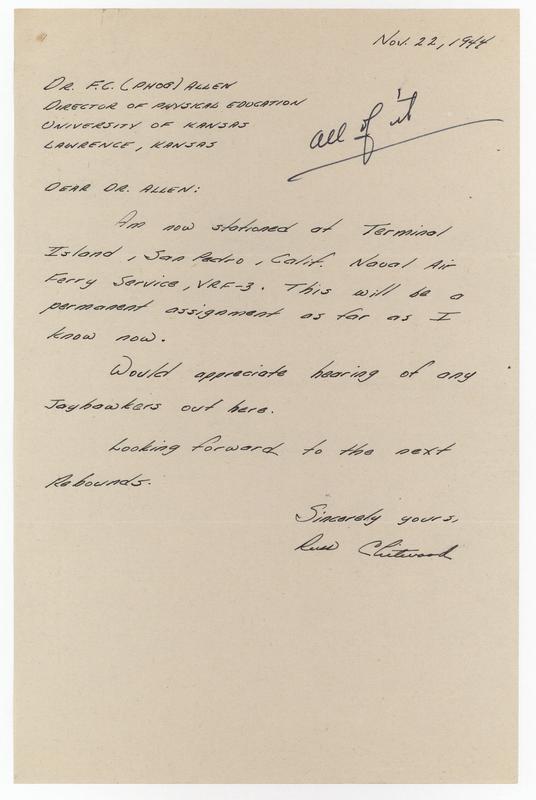 Nov. 22, 1944
DR. F.C. (PHOG) ALLEN
DIRECTOR OF PHYSICAL EDUCATION
UNIVERSITY OF KANSAS
LAWRENCE, KANSAS
all of it
DEAR DR. ALLEN:
Am now stationed at Terminal
Island, San Pedro, Calif. Naval Air
Ferry Service, VRF-3. This will be a
permanent assignment as far as I
know now.
Would appreciate hearing of any
Jayhawkers out here.
Looking forward to the next
Rebounds.
Sincerely yours,
Russ Chitwood